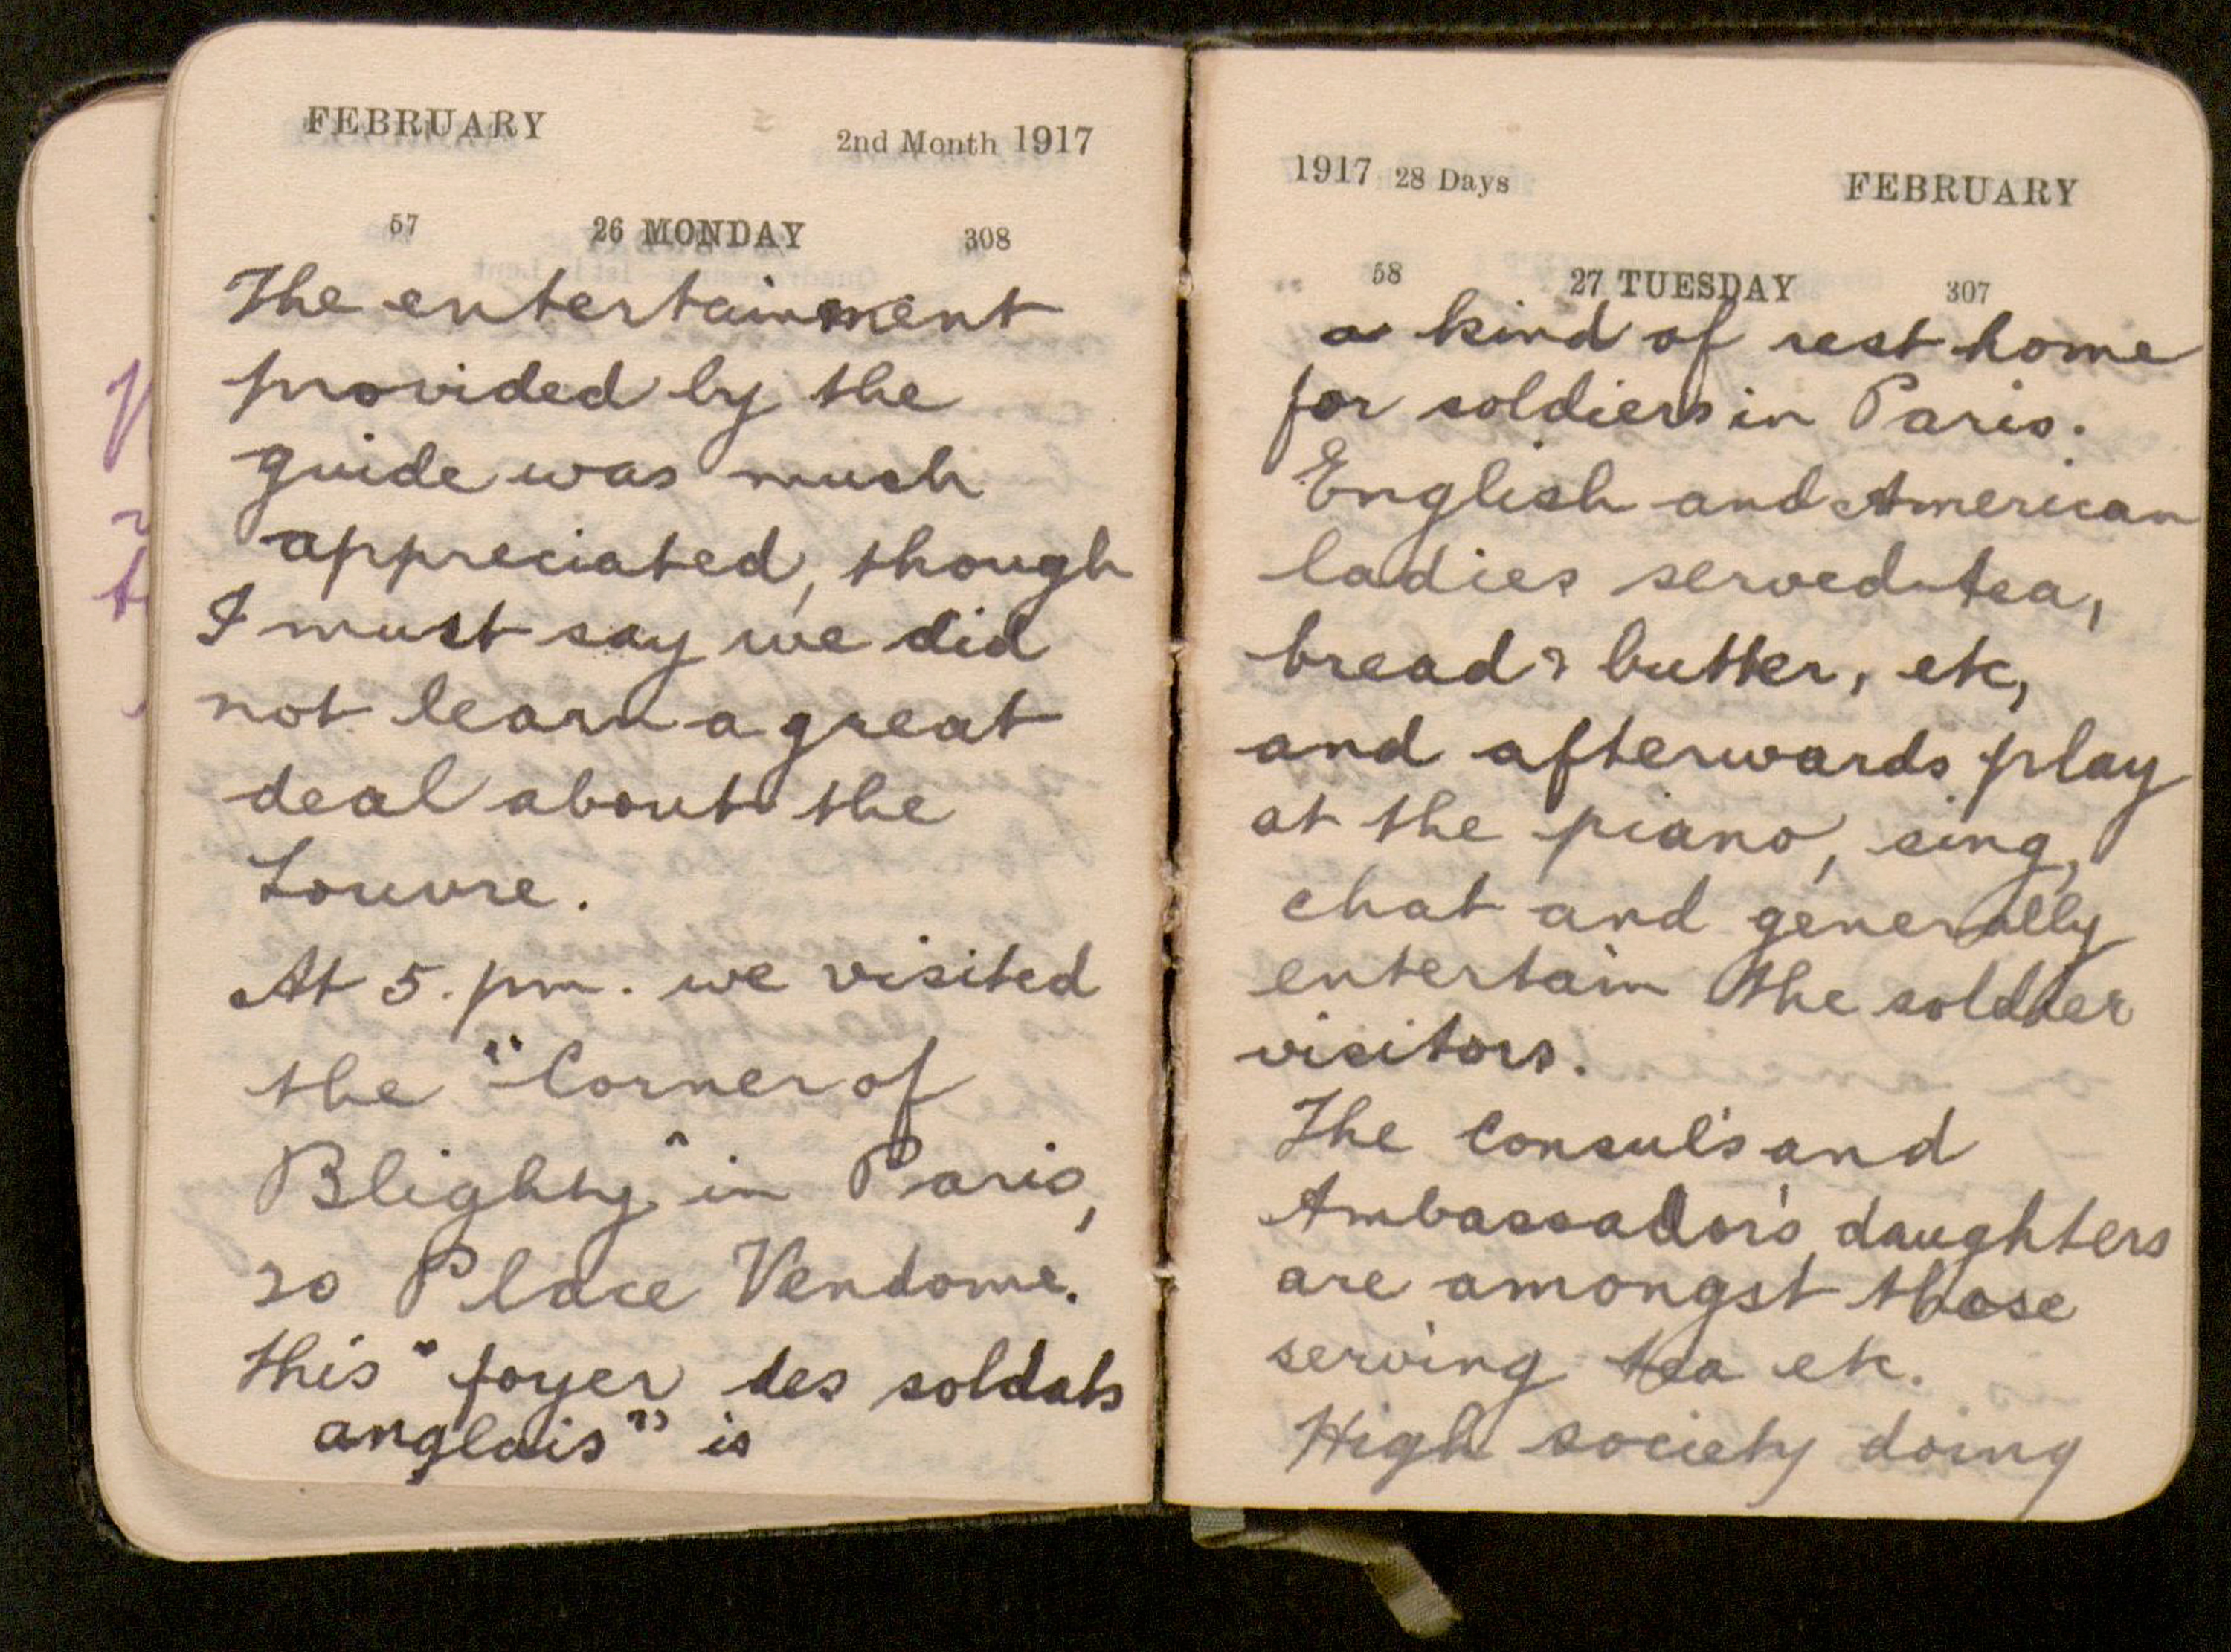 FEBRUARY 2nd Month 1917
57 26 MONDAY 308
The entertainment
provided by the
guide was much
appreciated, though
I must say we did
not learn a great
deal about the
Louvre.
At 5. pm. we visited
the "Corner of
Blighty" in Paris,
20 Place Vendome.
this "foyer des soldats
anglais" is
1917 28 Days FEBRUARY
58 27 TUESDAY 307
a kind of rest home
for soldiers in Paris.
English and American
ladies served tea,
bread & butter, etc,
and afterwards play
at the piano, sing,
chat and generally
entertain the soldier
visitors.
The Consul's and
Ambassador's daughters
are amongst those
serving tea etc.
High society doing